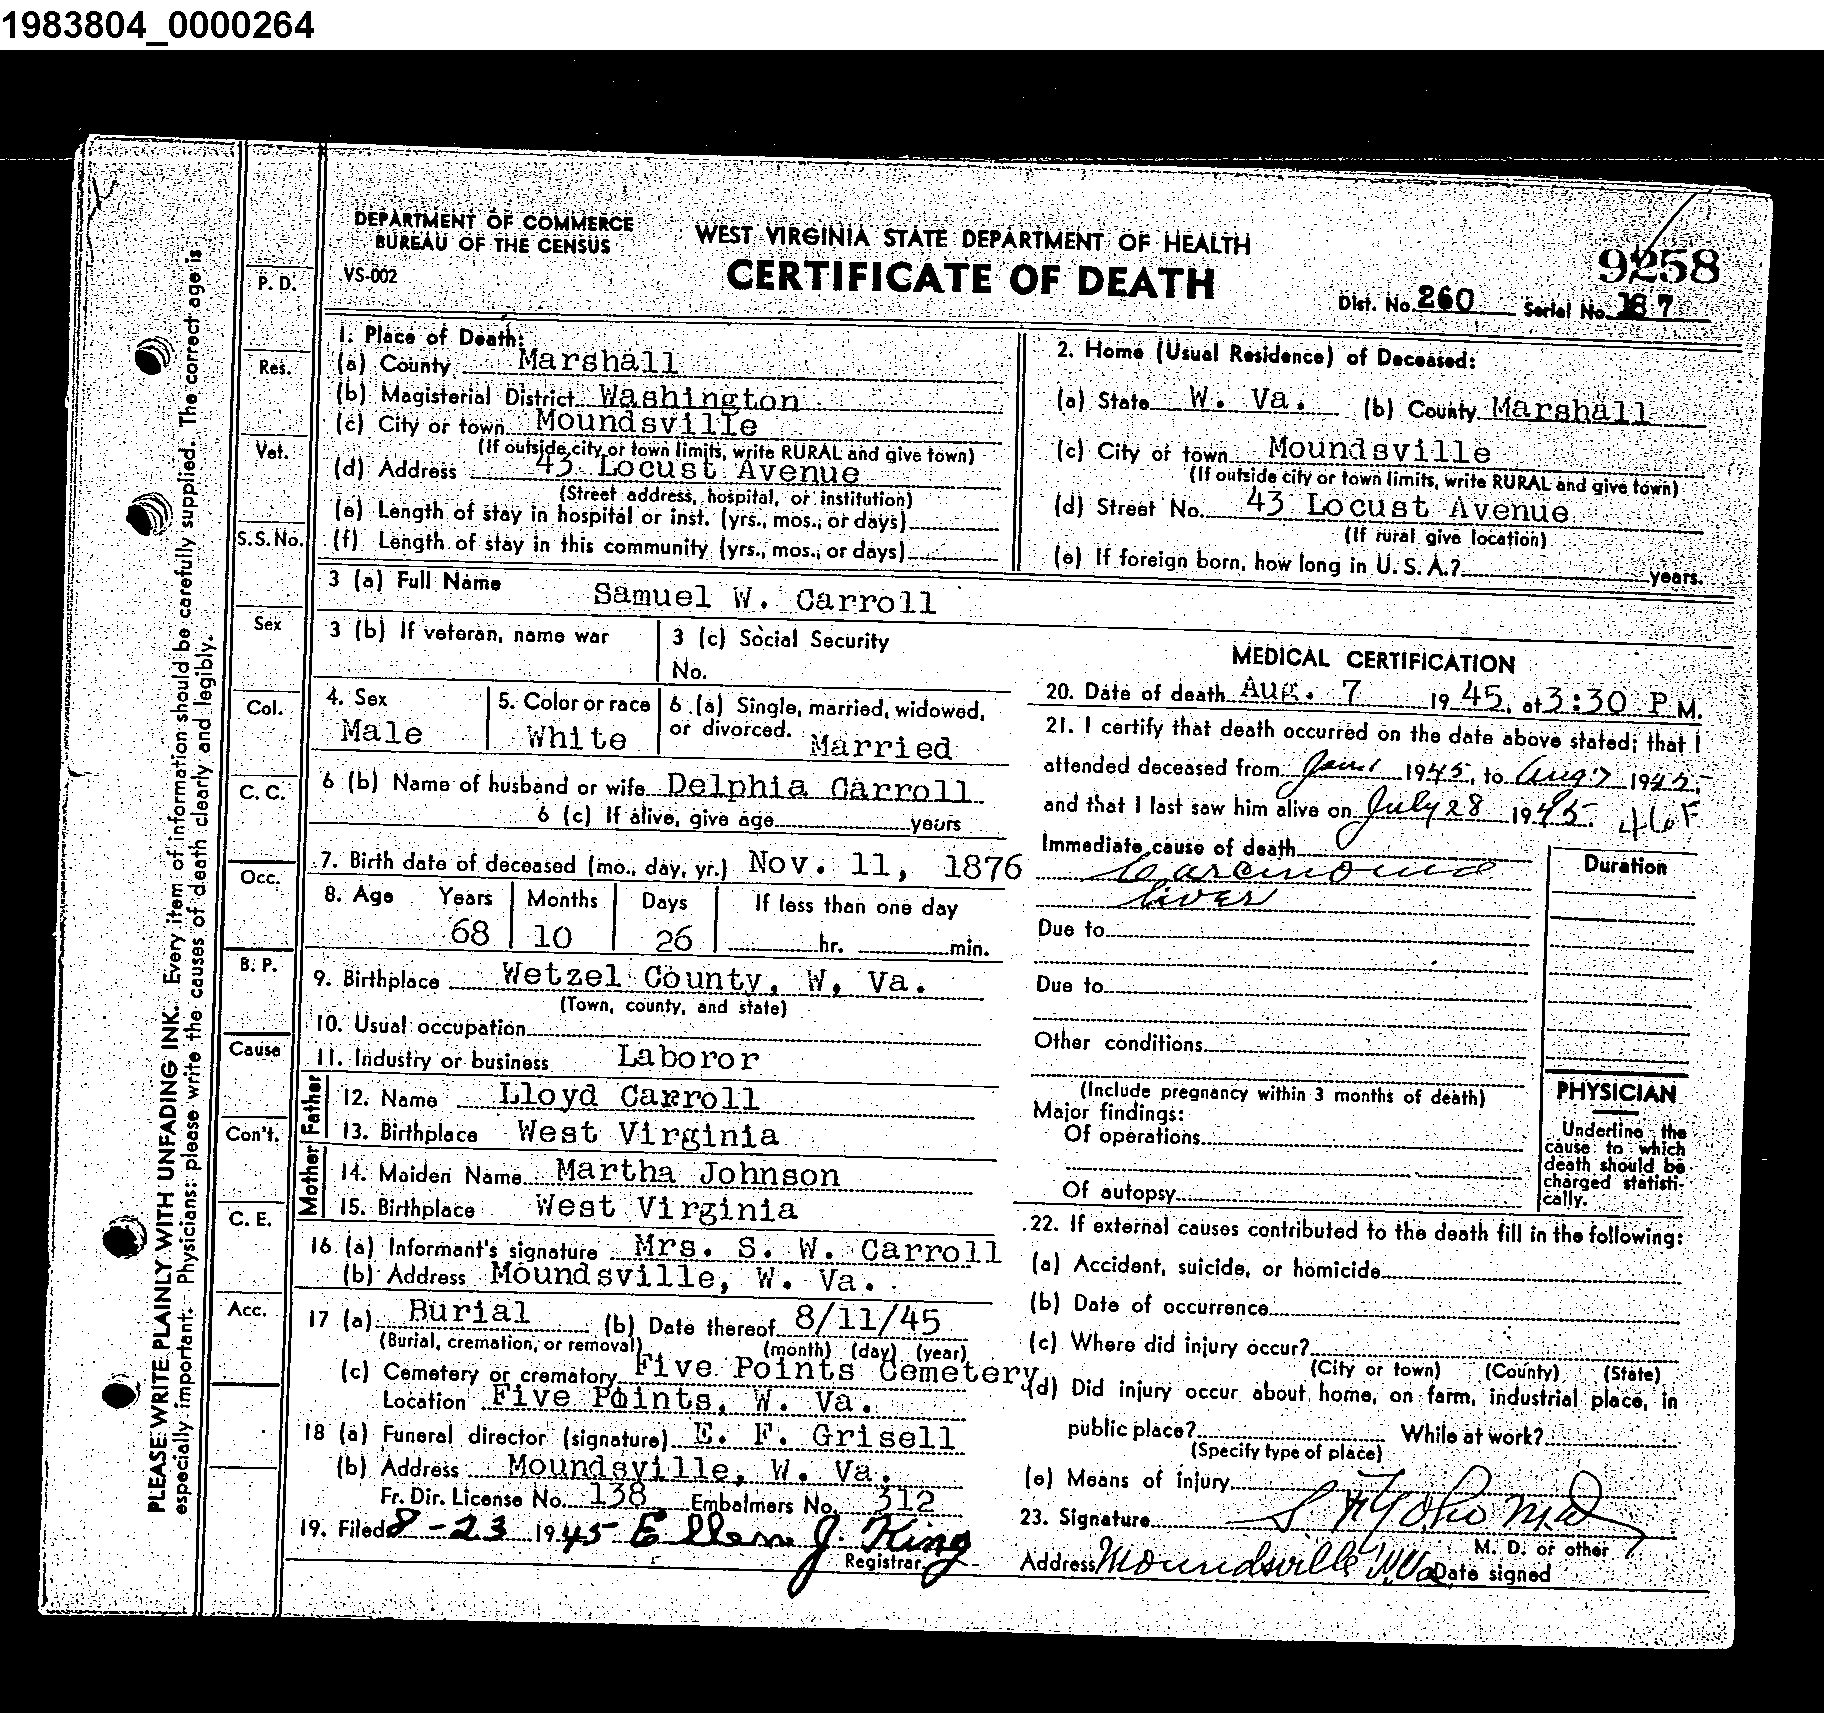 1983804_0000264
DEPARTMENT OF COMMERCE
BUREAU OF THE CENSUS
VS-002
WEST VIRGINIA STATE DEPARTMENT OF HEALTH
CERTIFICATE OF DEATH
9258
Dist. No. 260 Serial No. 187
PLEASE WRITE PLAINLY WITH UNFADING INK. Every item of information should be carefully supplied. The correct age is
especially important. Physicians: please write the causes of death clearly and legibly.
P. D.
Res.
Vet.
S.S. No.
Sex
Col.
C. C.
Occ.
B. P.
Cause
Con't.
C. E.
Acc.
1. Place of Death:
(a) County Marshall
(b) Magisterial District Washington
(c) City or town Moundsville
(If outside city or town limits, write RURAL and give town)
(d) Address 43 Locust Avenue
(Street address, hospital, or institution)
(e) Length of stay in hospital or inst. (yrs., mos., or days)
(f) Length of stay in this community (yrs., mos., or days)
2. Home (Usual Residence) of Deceased:
(a) State W. Va. (b) County Marshall
(c) City or town Moundsville
(If outside city or town limits, write RURAL and give town)
(d) Street No. 43 Locust Avenue
(If rural give location)
(e) If foreign born, how long in U. S. A.? years.
3 (a) Full Name Samuel W. Carroll
3 (b) If veteran, name war
3 (c) Social Security
No.
4. Sex
Male
5. Color or race
White
6 (a) Single, married, widowed,
or divorced. Married
6 (b) Name of husband or wife Delphia Carroll
6 (c) If alive, give age years
7. Birth date of deceased (mo., day, yr.) Nov. 11, 1876
8. Age Years Months Days If less than one day
68 10 26 hr. min.
9. Birthplace Wetzel County, W. Va.
(Town, county, and state)
10. Usual occupation
11. Industry or business Laboror
Father
12. Name Lloyd Carroll
13. Birthplace West Virginia
Mother
14. Maiden Name Martha Johnson
15. Birthplace West Virginia
16 (a) Informant's signature Mrs. S. W. Carroll
(b) Address Moundsville, W. Va.
17 (a) Burial (b) Date thereof 8/11/45
(Burial, cremation, or removal) (month) (day) (year)
(c) Cemetery or crematory Five Points Cemetery
Location Five Points, W. Va.
18 (a) Funeral director (signature) E. F. Grisell
(b) Address Moundsville, W. Va.
Fr. Dir. License No. 138 Embalmers No. 312
19. Filed 8-23 1945 Ellen J. King
Registrar
MEDICAL CERTIFICATION
20. Date of death Aug. 7 1945, at 3:30 P.M.
21. I certify that death occurred on the date above stated; that I
attended deceased from 1945, to Aug 7 1945.
and that I last saw him alive on July 28 1945.
Immediate cause of death
Carcinoma
liver
Duration
Due to
Due to
Other conditions
(Include pregnancy within 3 months of death)
Major findings:
Of operations
Of autopsy
PHYSICIAN
Underline the
cause to which
death should be
charged statisti-
cally.
22. If external causes contributed to the death fill in the following:
(a) Accident, suicide, or homicide
(b) Date of occurrence
(c) Where did injury occur?
(City or town) (County) (State)
(d) Did injury occur about home, on farm, industrial place, in
public place? While at work?
(Specify type of place)
(e) Means of injury
23. Signature Yoho M.D
M. D. or other
Address Moundsville W.Va Date signed